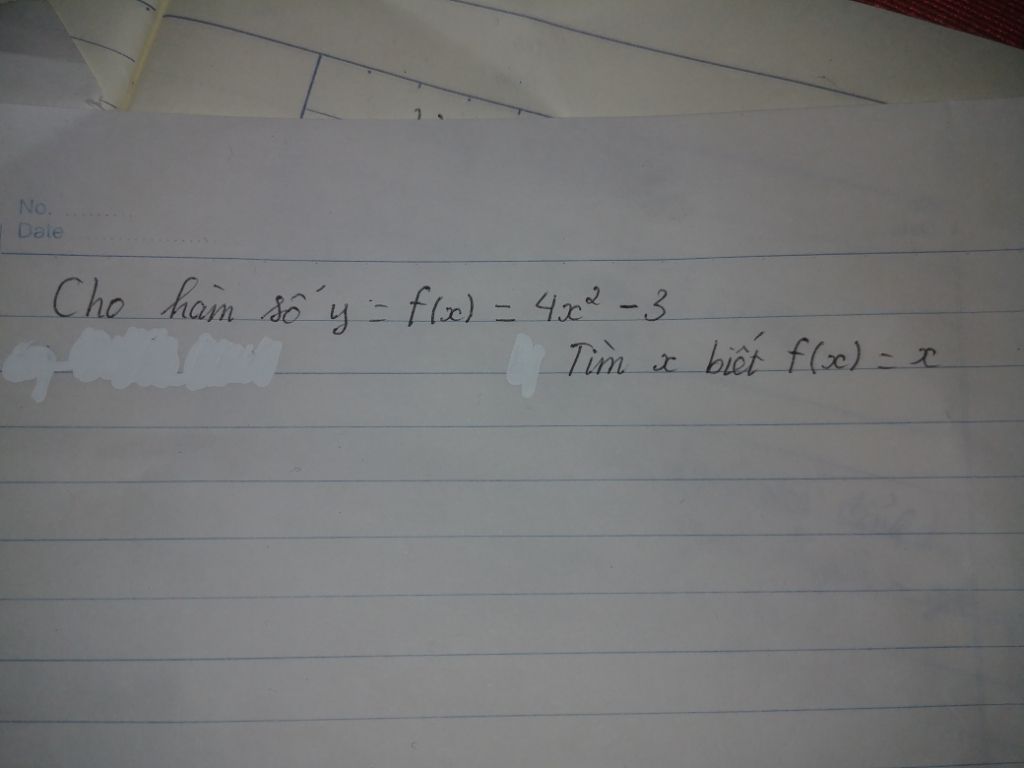 No. ..........
Date ....................
Cho hàm số y = f(x) = 4x² - 3
Tìm x biết f(x) = x